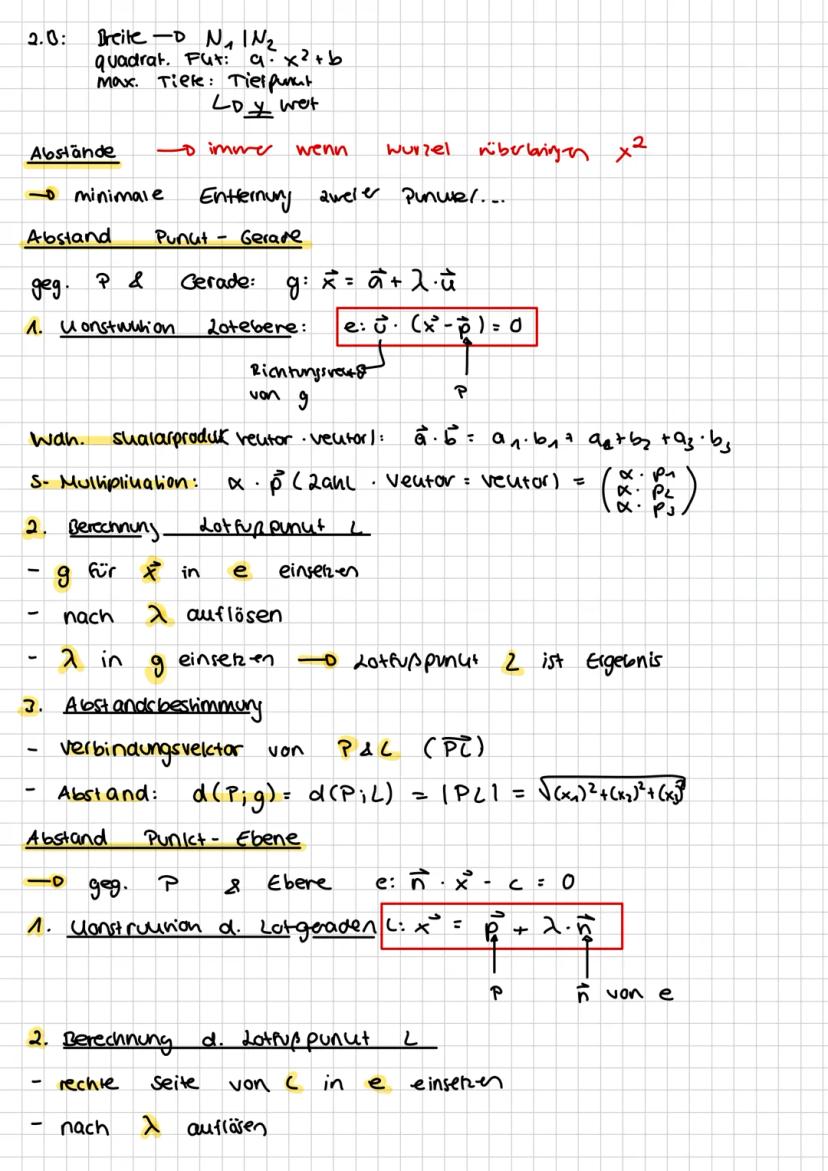 z.B: Breite → N₁ | N₂
quadrat. Fkt: a · x² + b
max. Tiefe: Tiefpunkt
↳ y wert
Abstände → immer wenn wurzel rüberbringen x²
→ minimale Entfernung zweier Punkte/...
Abstand Punkt - Gerade
geg. P & Gerade: g: x⃗ = a⃗ + λ · u⃗
1. Konstruktion Lotebene: e: u⃗ · (x⃗ - p⃗) = 0
Richtungsvektor
von g P
Wdh. skalarprodukt vektor · vektor): a⃗ · b⃗ = a₁ · b₁ + a₂ + b₂ + a₃ · b₃
S- Multiplikation: α · p⃗ (Zahl · Vektor = vektor) = (α · p₁ α · p₂ α · p₃)
2. Berechnung Lotfußpunkt L
- g für x⃗ in e einsetzen
- nach λ auflösen
- λ in g einsetzen → Lotfußpunkt L ist Ergebnis
3. Abstandsbestimmung
- Verbindungsvektor von P & L (P⃗L)
- Abstand: d(P;g) = d(P;L) = |PL| = √(x₁)²+(x₂)²+(x₃)²
Abstand Punkt - Ebene
→ geg. P & Ebene e: n⃗ · x⃗ - c = 0
1. Konstruktion d. Lotgeraden L: x⃗ = p⃗ + λ · n⃗
P n⃗ von e
2. Berechnung d. Lotfußpunkt L
- rechte seite von L in e einsetzen
- nach λ auflösen